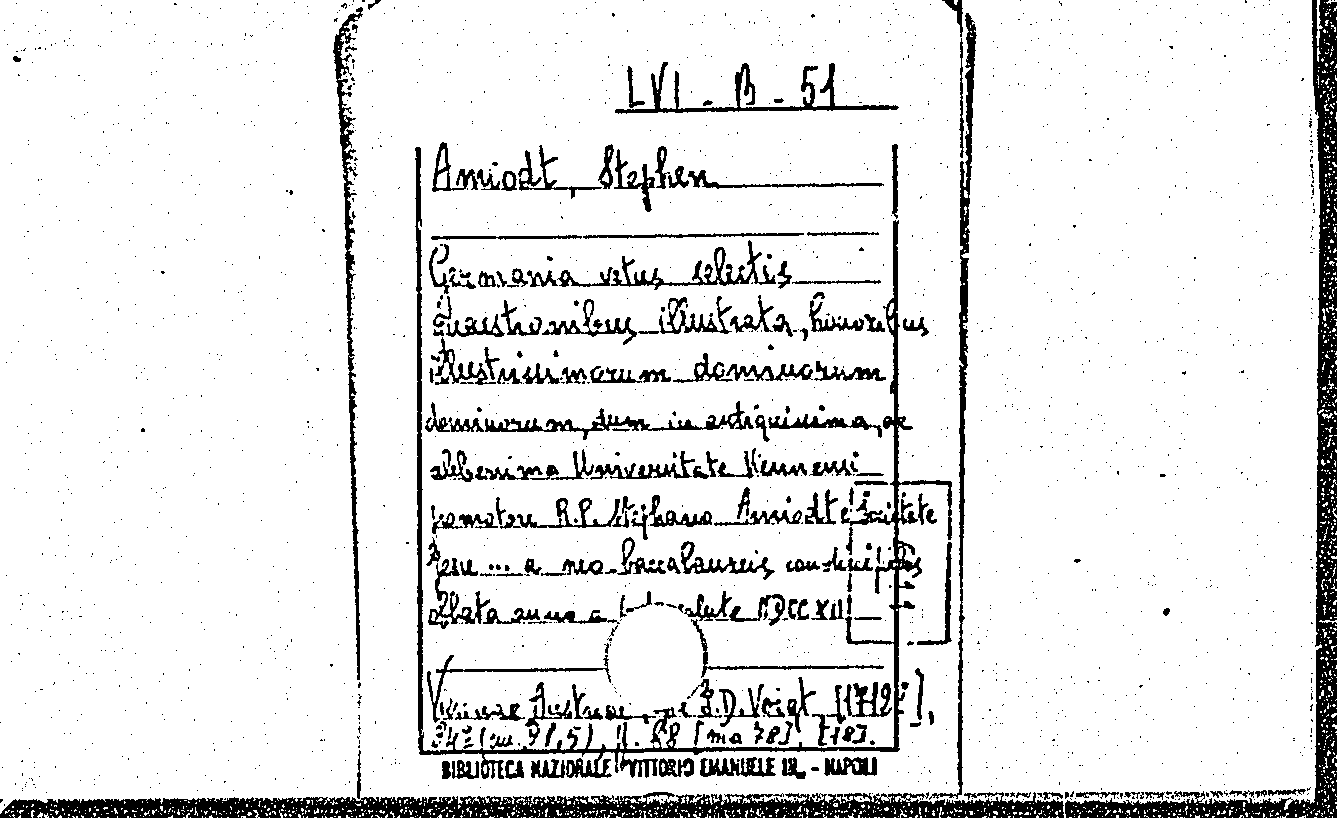 LVI - B - 51
Amiodt, Stephen
Germania vetus selectis
Quaestionibus illustrata, honoribus
illustrissimorum dominorum,
dominorum, dum in antiquissima, ac
celeberrima Universitate Viennensi
promotore R.P. Stephano Amiodt e Societate
Jesu ... a neo-baccalaureis
oblata anno a salute MDCCXII
Viennae Austriae, J.D. Voigt [1712?],
BIBLIOTECA NAZIONALE VITTORIO EMANUELE III - NAPOLI